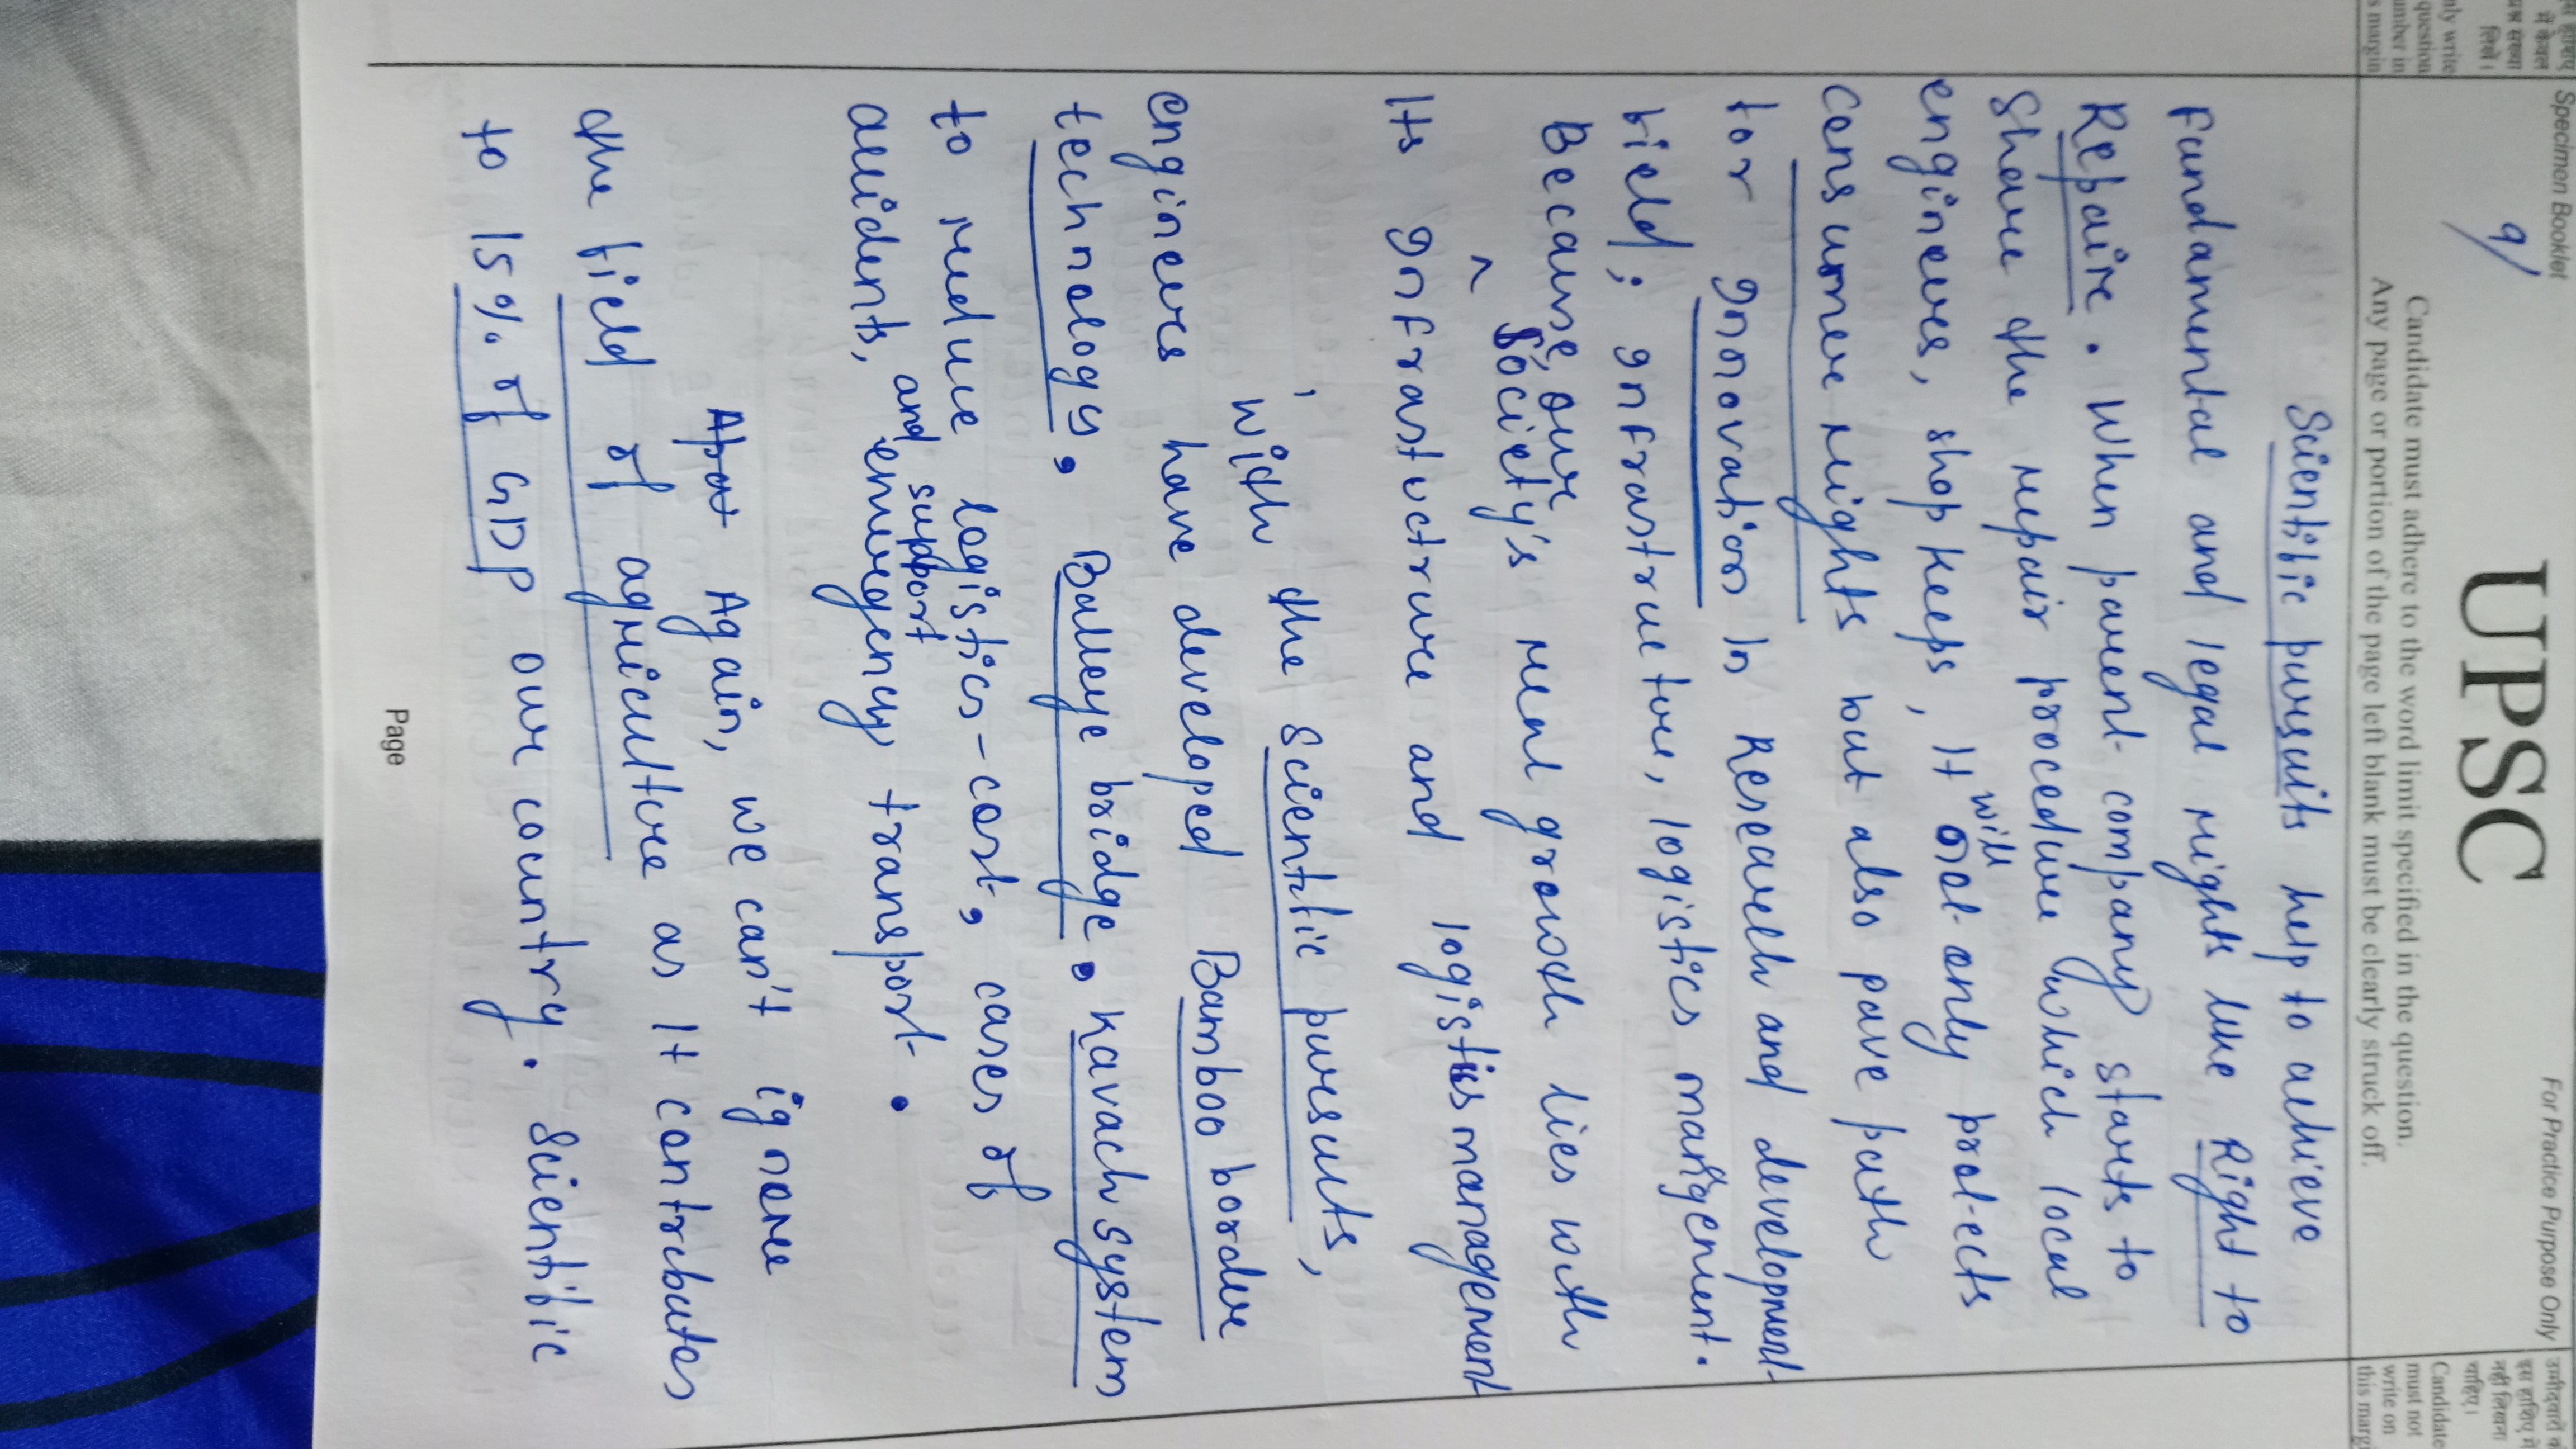 Specimen Booklet
For Practice Purpose Only
9/
UPSC
Candidate must adhere to the word limit specified in the question.
Any page or portion of the page left blank must be clearly struck off.
में केवल
लिखें।
nly write
question
umber in
s margin
उम्मीदवारों
नहीं लिखना
चाहिए।
Candidate
must not
write on
this marg
Scientific pursuits help to achieve
Fundamental and legal rights like Right to
Repaire. When parent company starts to
Share the repair procedure which local
engineers, shopkeeps, It will not only protects
consumer rights but also pave path
for Innovation in Research and development
field; Infrastructure, logistics mangement.
Because, our society's real growth lies with
its Infrastructure and logistics management
, with the scientific pursuits,
engineers have developed Bamboo border
technology, Balleye bridge. Kavach system
to reduce logistics-cost, cases of
accidents, and support emergency transport.
Apat Again, we can't ignore
the field of agriculture as It contributes
to 15% of GDP our country. Scientific
Page